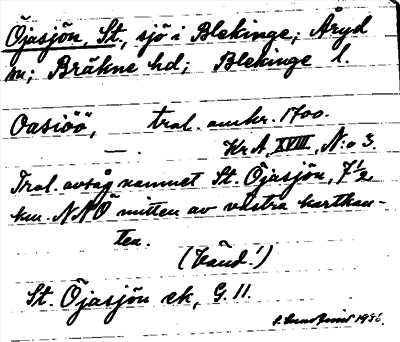 Öjasjön, St., sjö i Blekinge; Åryd
sn; Bräkne hd; Blekinge l.
Oasiöö, tral. omkr. 1700.
— . Kr A, XVIII, N:o 3.
Tral. avsåg namnet St. Öjasjön, 7 1/2
km. NNÖ mitten av västra kartkan-
ten.
(Vänd!)
St. Öjasjön ek, G. 11.
1936.